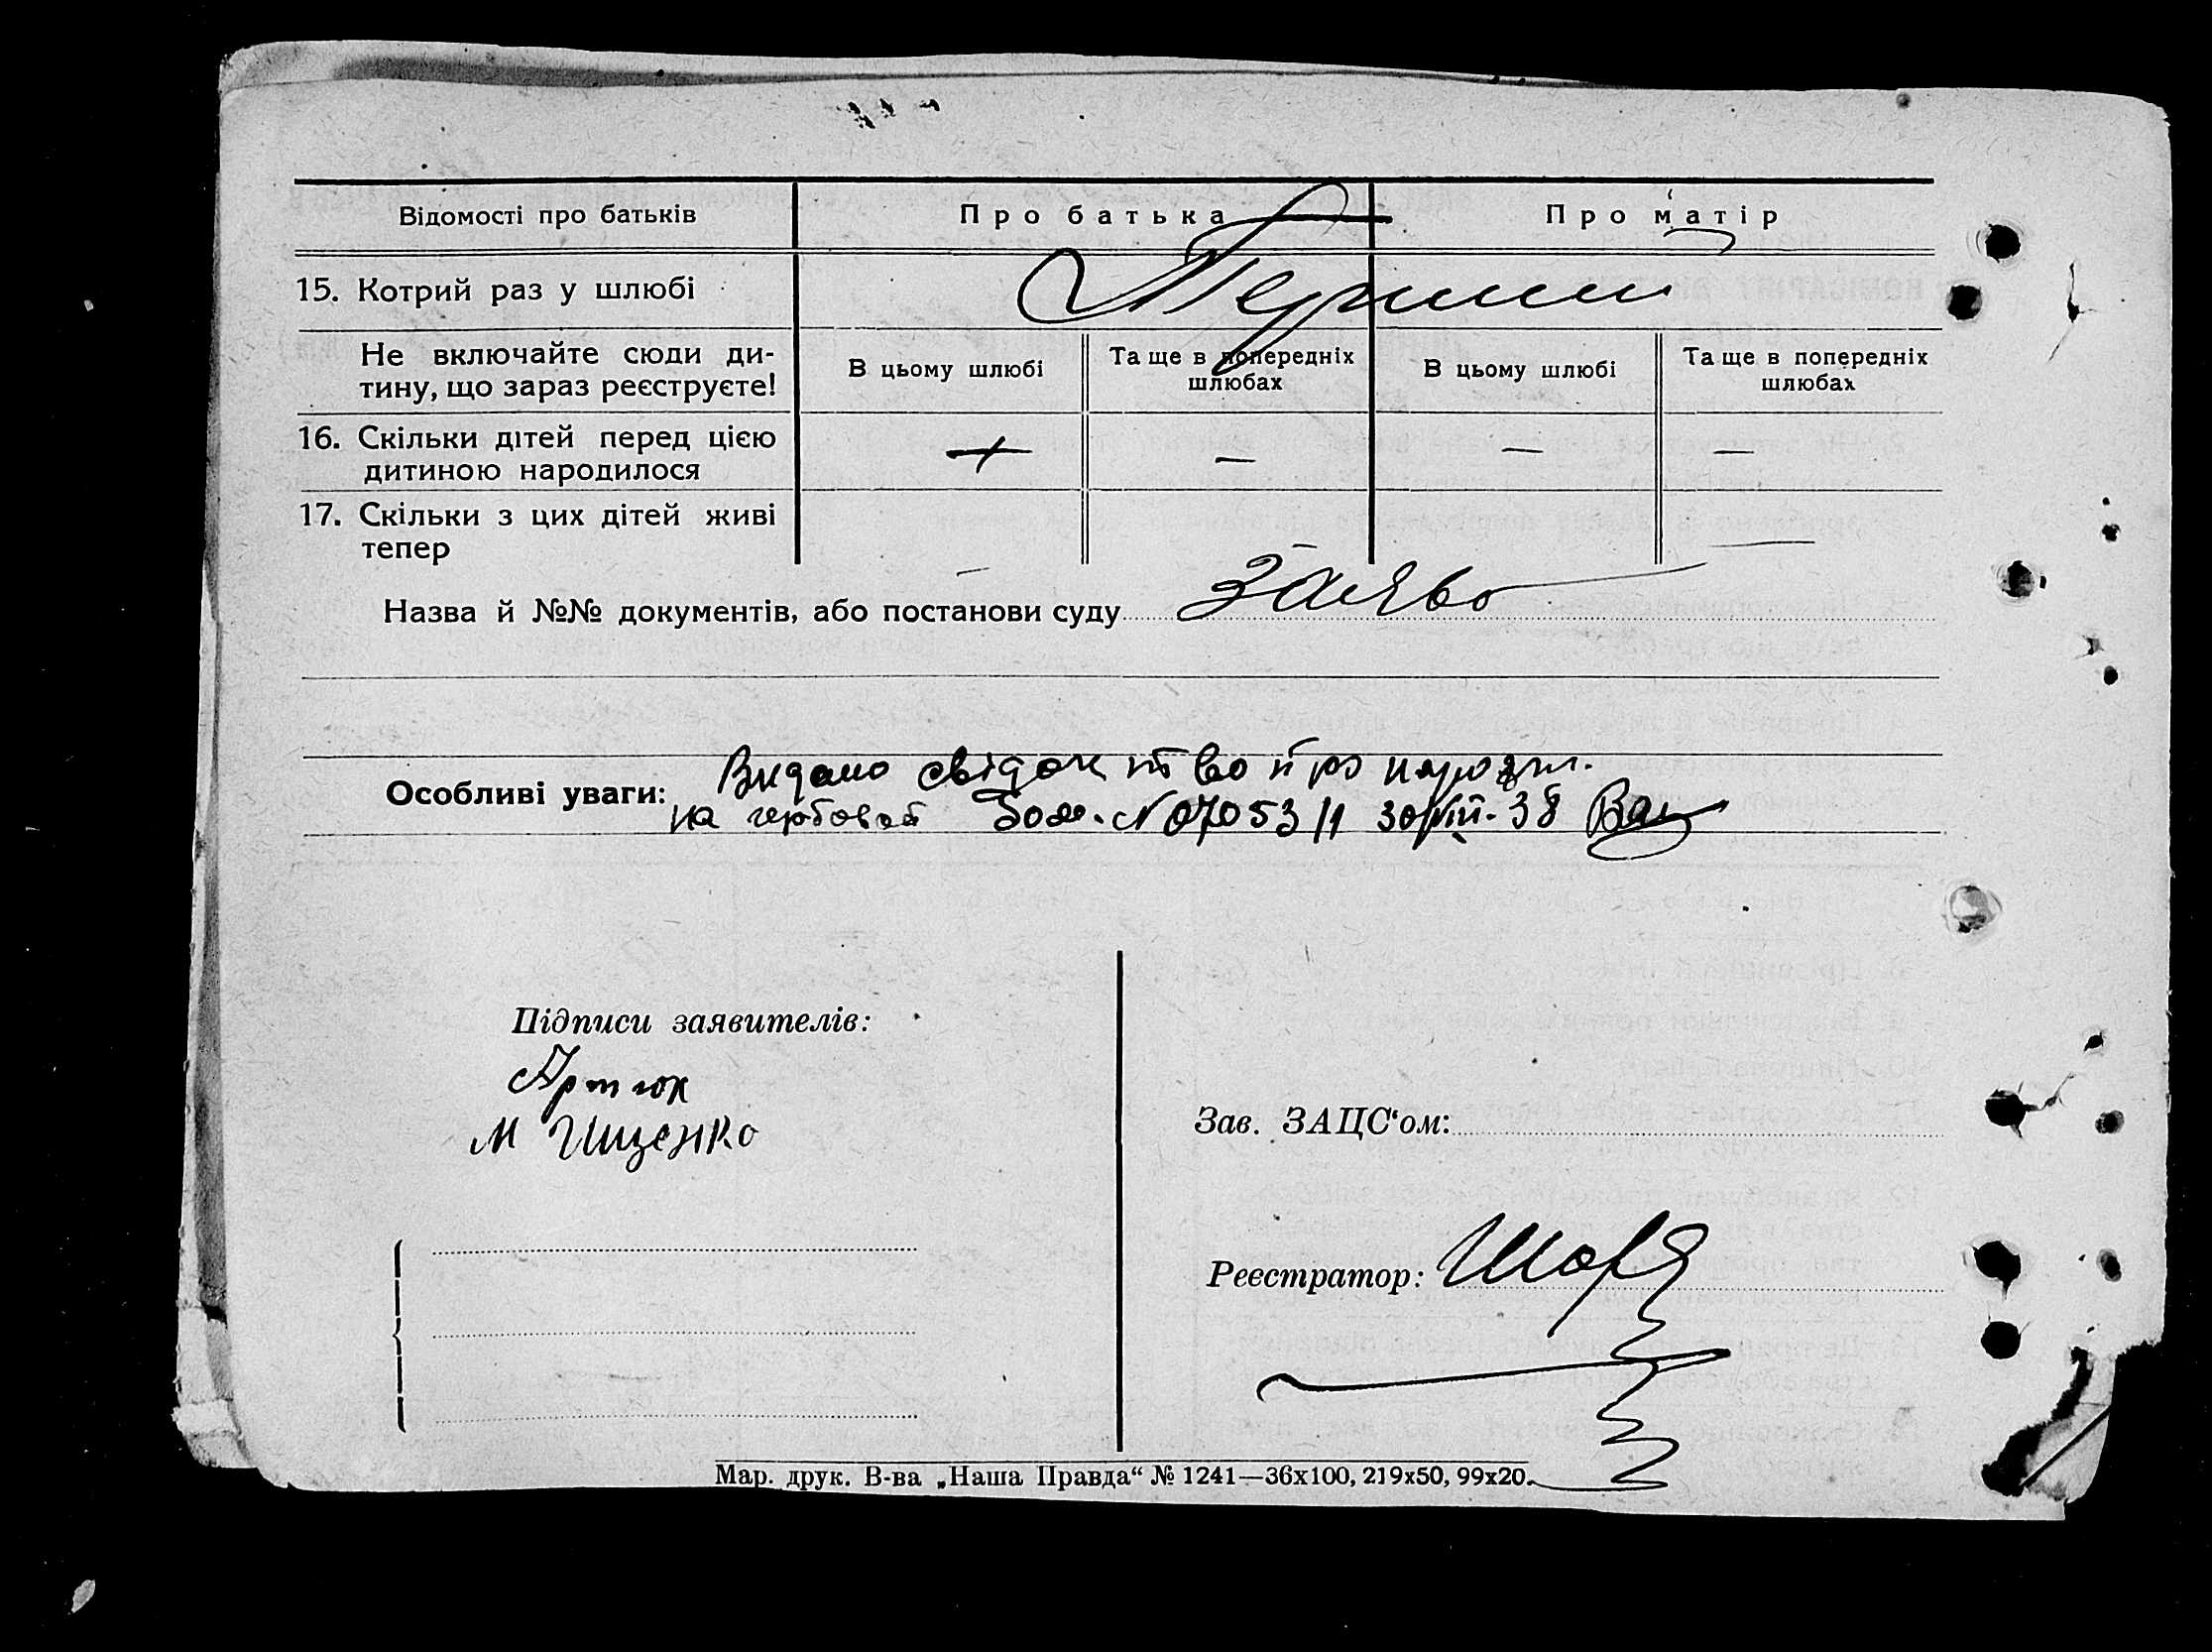 Відомості про батьків Про батька Про матір
15. Котрий раз у шлюбі Перший
Не включайте сюди ди-
тину, що зараз реєструєте!
В цьому шлюбі Та ще в попередніх шлюбах В цьому шлюбі Та ще в попередніх шлюбах
16. Скільки дітей перед цією
дитиною народилося + — — —
17. Скільки з цих дітей живі
тепер — — —
Назва й №№ документів, або постанови суду
Особливі уваги: Видано свідоцтво про народж.
на гербовой № 07053/1 30/VIII-38
Підписи заявителів:
Артюк
М Гищенко
Зав. ЗАЦС‘ом:
Реєстратор:
Мар. друк. В-ва „Наша Правда“ № 1241—36х100, 219х50, 99х20.